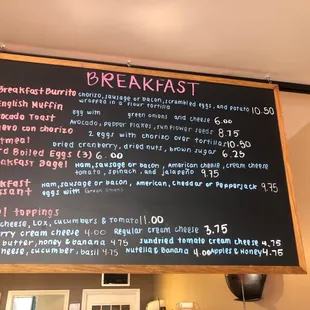 BREAKFAST
Breakfast Burrito chorizo, sausage or bacon, scrambled eggs, and potato 10.50
wrapped in a flour tortilla
English Muffin egg with green onions and cheese 6.00
Avocado Toast Avocado, pepper flakes, sunflower seeds 8.75
evo con chorizo 2 eggs with chorizo over tortillas 10.50
tmeal dried cranberry, dried nuts, brown sugar 6.25
rd Boiled Eggs (3) 6.00
eakfast Bagel Ham, sausage or bacon, American cheese, cream cheese
tomato, spinach, and jalapeño 9.75
eakfast Ham, sausage or bacon, american, cheddar or Pepperjack 9.75
issant eggs with Green onions
l toppings
cheese, Lox, cucumbers & Tomato 11.00
rry cream cheese 4.00 Regular cream cheese 3.75
butter, honey & banana 4.75 sundried tomato cream cheese 4.75
cheese, cucumber, basil 4.75 Nutella & Banana 4.00 Apples & Honey 4.75